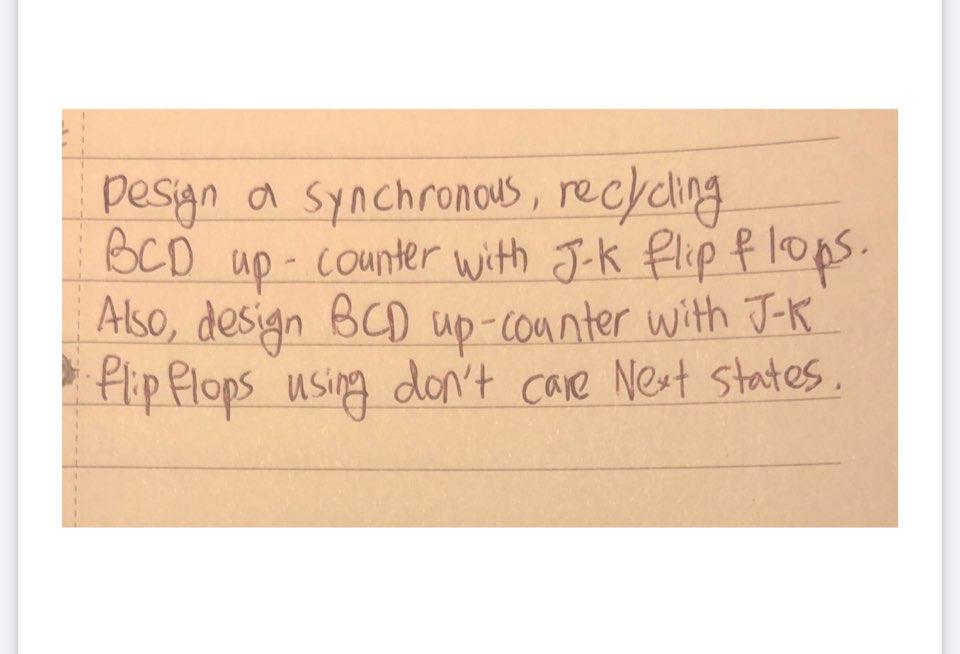 Design a synchronous, recycling
BCD up-counter with J-K flip flops.
Also, design BCD up-counter with J-K
flip flops using don't care Next states.